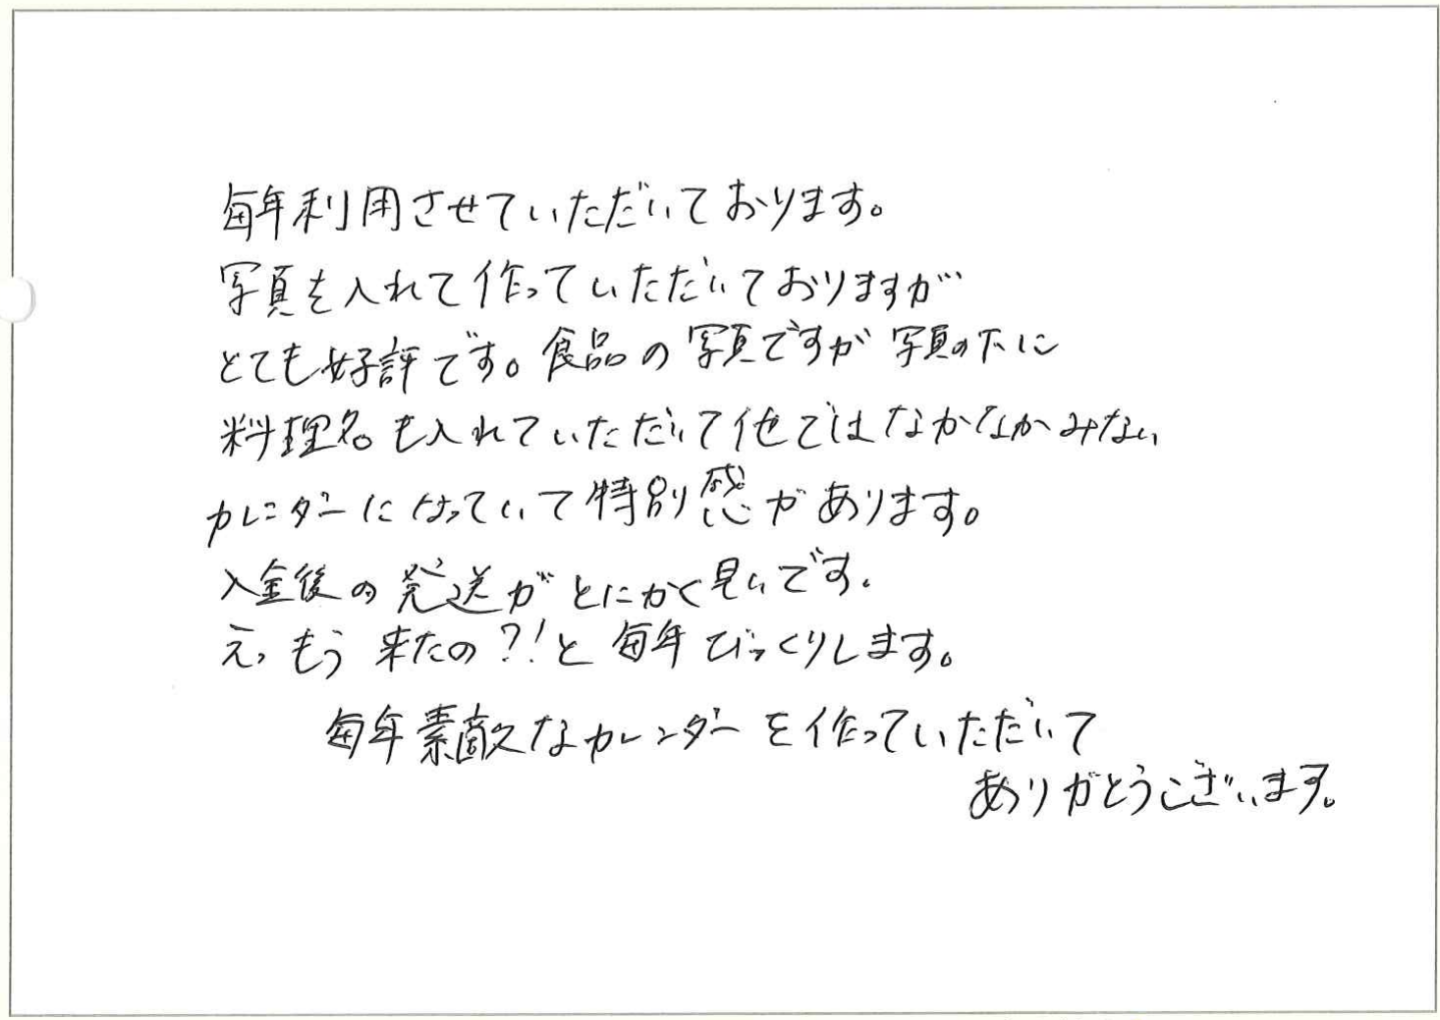 毎年利用させていただいております。
写真を入れて作っていただいておりますが
とても好評です。食品の写真ですが写真の下に
料理名も入れていただいて他ではなかなかみない
カレンダーになっていて特別感があります。
入金後の発送がとにかく早いです。
えっもう来たの?!と毎年びっくりします。
毎年素敵なカレンダーを作っていただいて
ありがとうございます。